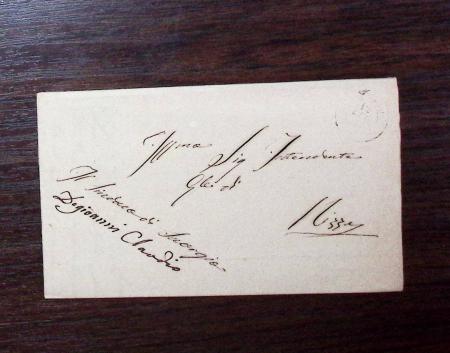 Ill.mo Sig Intendente
Gle di
Nizza
Il Sindaco di
Degioanni Claudio